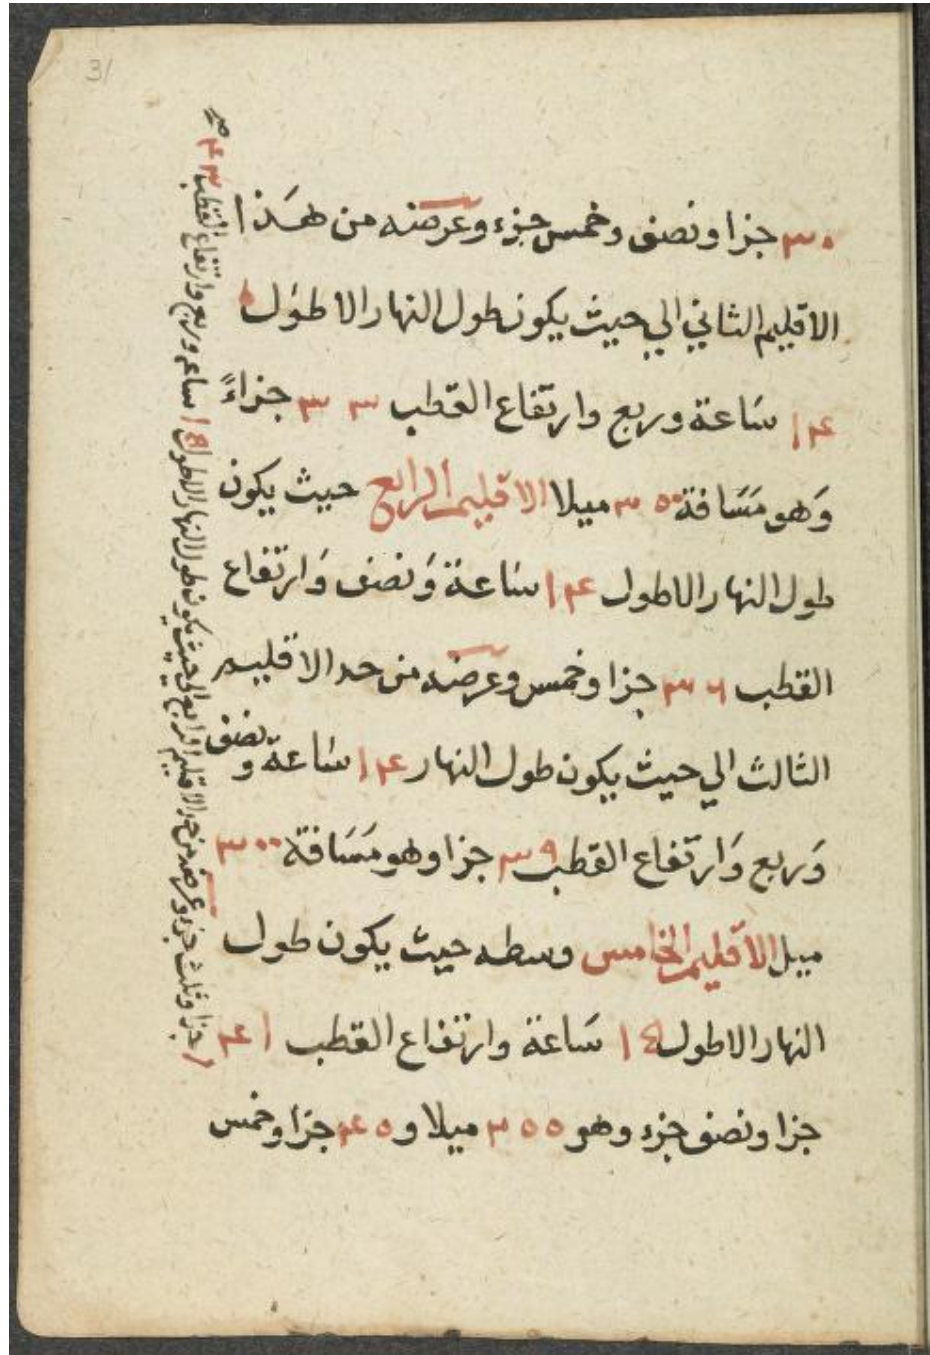 31
٣٠ جزا ونصف وخمس جزء وعرضه من هذا
الاقليم الثاني الي حيث يكون طول النهار الاطول
١٤ سَاعة وربع وارتفاع القطب ٣٣ جزاءً
وَهو مَسَافة ٣٥٠ ميلا الاقليم الرابع حيث يكون
طول النهار الاطول ١٤ سَاعة وَنصف وَارتفاع
القطب ٣٦ جزا وخمس وعرضه من حد الاقليم
الثالث الي حيث يكون طول النهار ١٤ سَاعة ونصف
وَربع وَارتفاع القطب ٣٩ جزا وهو مَسَافة ٣٠٠
ميل الاقليم الخامس وسطه حيث يكون طول
النهار الاطول ١٥ سَاعة وارتفاع القطب ٤١
جزا ونصف جزء وهو ٣٥٥ ميلا و ٤٥ جزا وخمس
جزا وثلث جزء وعرضه من حد الاقليم الرابع الي حيث يكون طول النهار الاطول ١٥ ساعة وربع وارتفاع القطب ٤٣